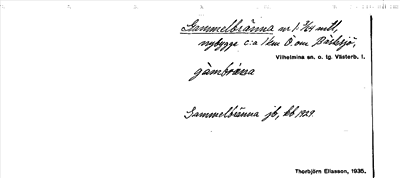 Gammelbränna nr 1: 3/64 mtl,
nybygge c:a 1 km Ö. om Bäsksjö,
Vilhelmina sn. o. lg. Västerb. l.
gàmbränna
Gammelbränna jb, kb 1929.
Thorbjörn Eliasson, 1935.